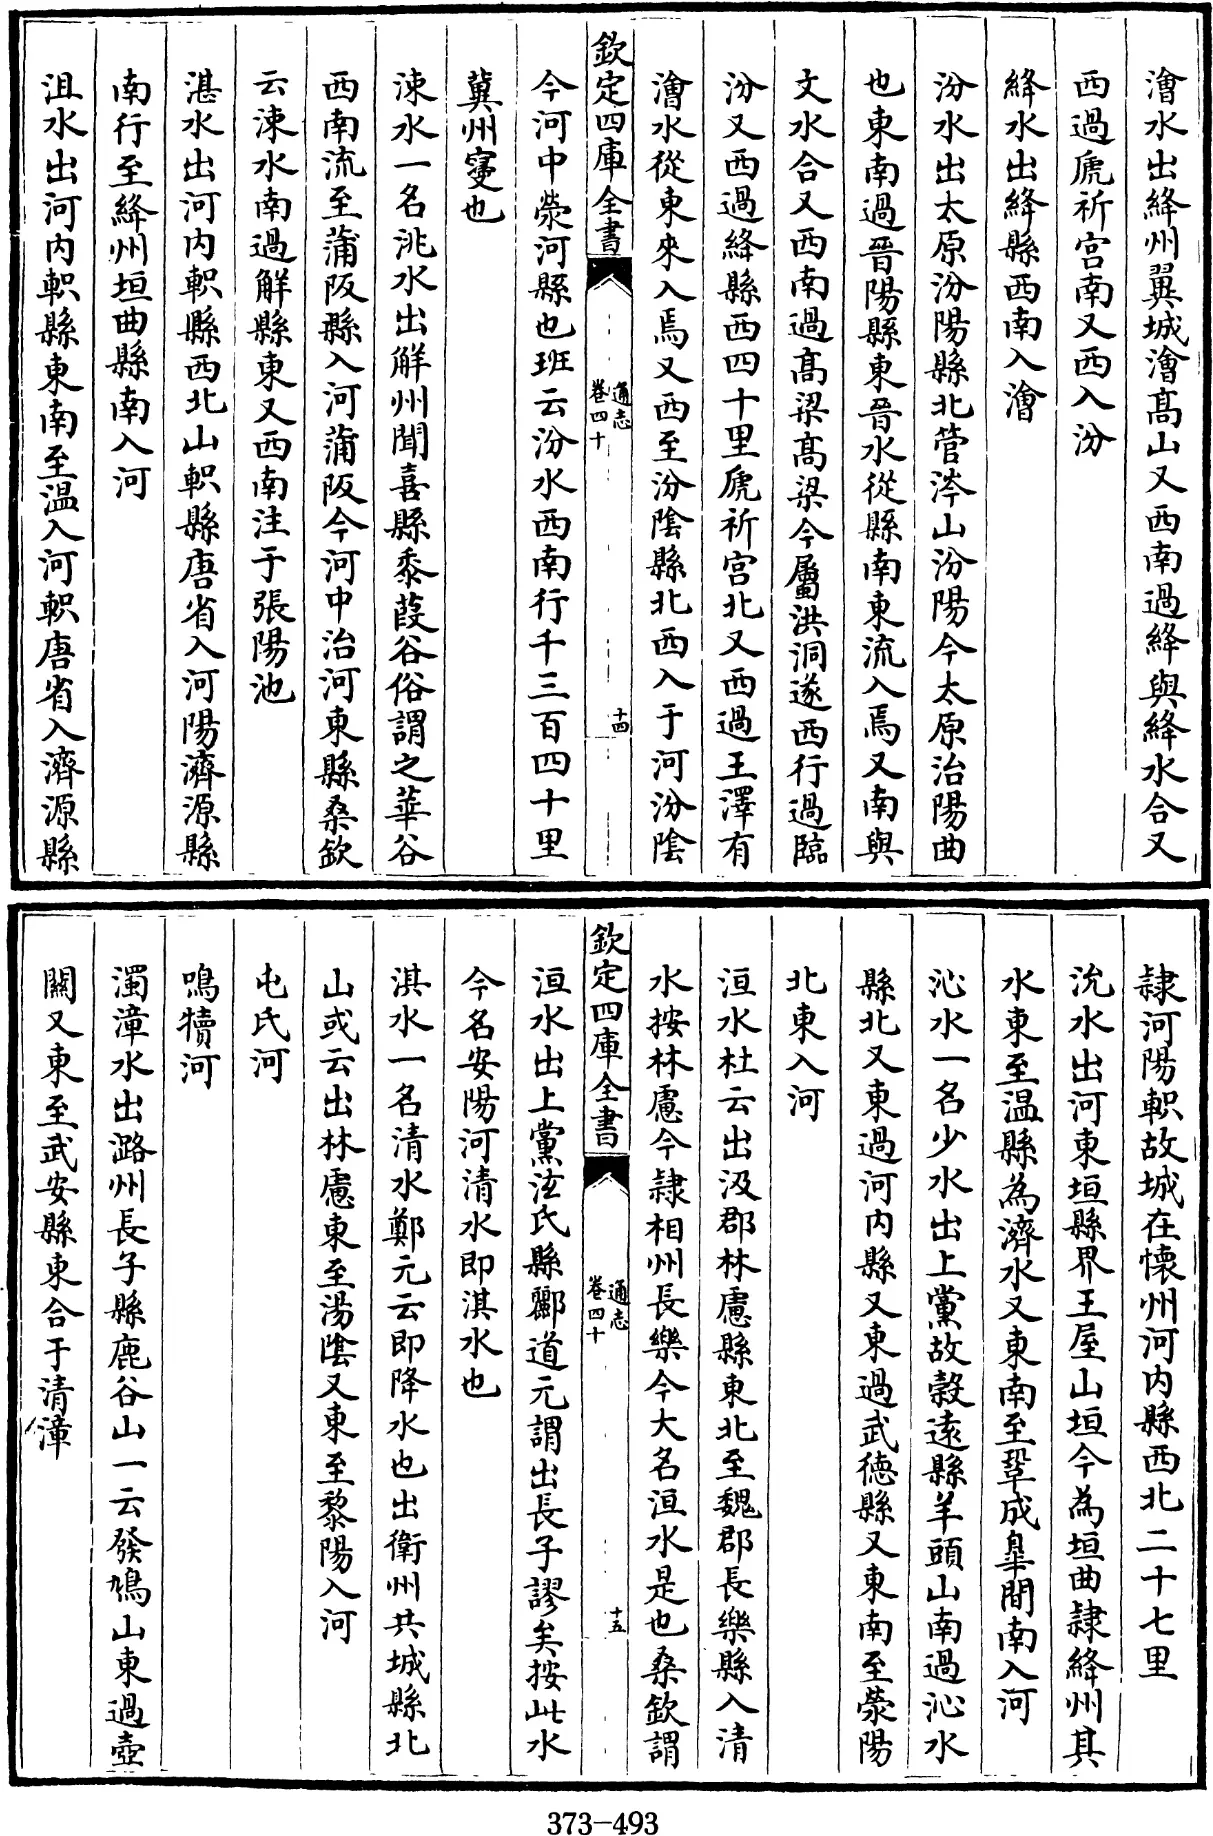 澮水出絳州翼城澮髙山又西南過絳與絳水合又
西過虒祈宫南又西入汾
絳水出絳縣西南入澮
汾水出太原汾陽縣北管涔山汾陽今太原治陽曲
也東南過晉陽縣東晉水從縣南東流入焉又南與
文水合又西南過髙梁髙梁今屬洪洞遂西行過臨
汾又西過絳縣西四十里虒祈宫北又西過王澤有
澮水從東來入焉又西至汾隂縣北西入于河汾隂
欽定四庫全書
通志
卷四十
十四
今河中滎河縣也班云汾水西南行千三百四十里
冀州寖也
涑水一名洮水出解州聞喜縣黍葭谷俗謂之華谷
西南流至蒲阪縣入河蒲阪今河中治河東縣桑欽
云涑水南過解縣東又西南注于張陽池
湛水出河内軹縣西北山軹縣唐省入河陽濟源縣
南行至絳州垣曲縣南入河
沮水出河内軹縣東南至温入河軹唐省入濟源縣
隸河陽軹故城在懷州河内縣西北二十七里
沇水出河東垣縣界王屋山垣今為垣曲隸絳州其
水東至温縣為濟水又東南至鞏成臯間南入河
沁水一名少水出上黨故穀逺縣羊頭山南過沁水
縣北又東過河内縣又東過武徳縣又東南至滎陽
北東入河
洹水杜云出汲郡林慮縣東北至魏郡長樂縣入清
水按林慮今隸相州長樂今大名洹水是也桑欽謂
欽定四庫全書
通志
卷四十
十五
洹水出上黨泫氏縣酈道元謂出長子謬矣按此水
今名安陽河清水即淇水也
淇水一名清水鄭元云即降水也出衛州共城縣北
山或云出林慮東至湯隂又東至黎陽入河
屯氏河
鳴犢河
濁漳水出潞州長子縣鹿谷山一云發鳩山東過壺
闗又東至武安縣東合于清漳
373-493